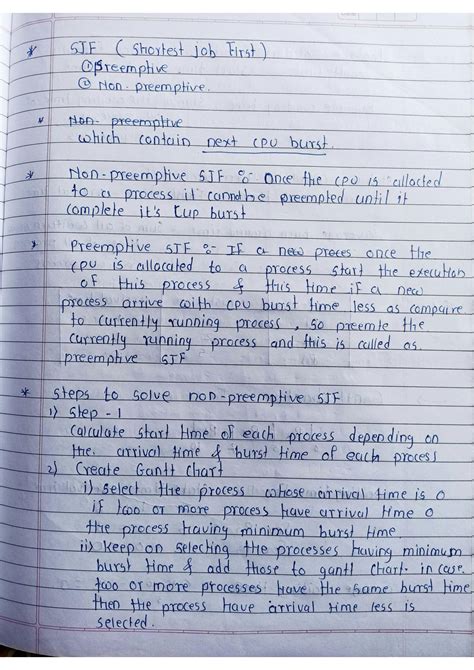 * SJF ( Shortest Job First )
① Preemptive
② Non-preemptive.
* Non-preemptive
which contain next CPU burst.
* Non-preemptive SJF :- Once the CPU is allocted
to a process it cannot be preempted until it
complete it's Cup burst
* Preemptive SJF :- If a new proces once the
CPU is allocated to a process start the execution
of this process & this time if a new
process arrive with CPU burst time less as compaire
to currently running process, so preemte the
currently running process and this is called as
preemphive SJF
* Steps to solve non-preemptive SJF
1) Step - 1
Calculate start time of each process depending on
the arrival time & burst time of each process
2) Create Gantt Chart
i) select the process whose arrival time is 0
if two or more process have arrival time 0
the process having minimum burst time
ii) keep on selecting the processes having minimum
burst time & add those to gantt chart. in case
two or more processes have the same burst time
then the process have arrival time less is
selected.